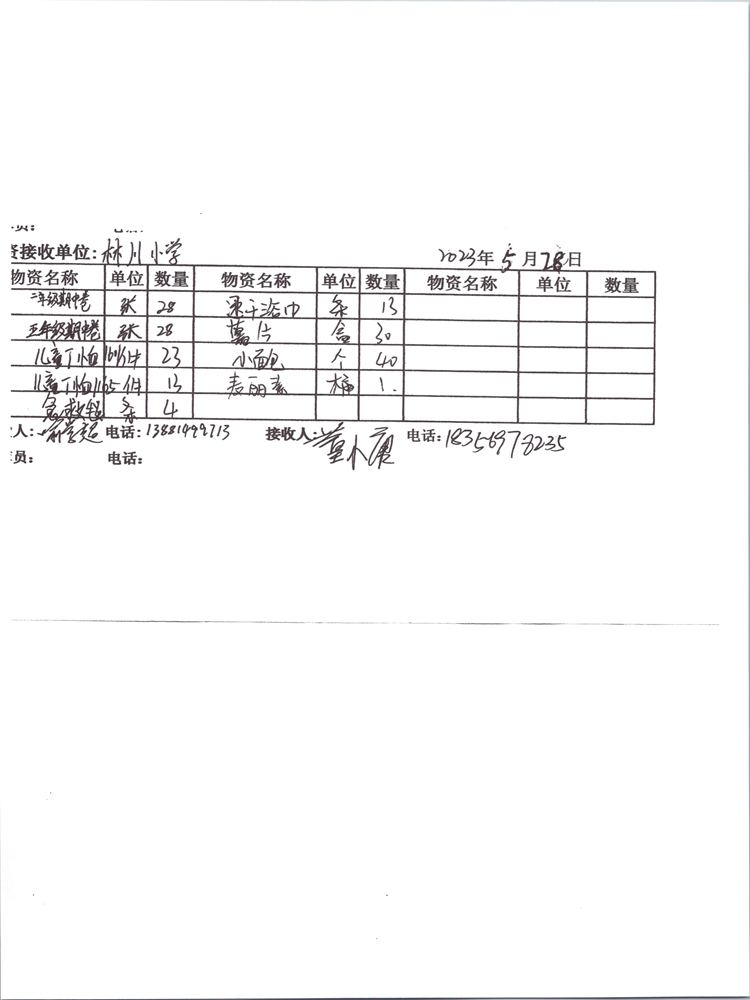 资接收单位:林川小学 2023年5月28日
物资名称 单位 数量 物资名称 单位 数量 物资名称 单位 数量
二年级期中卷 张 28 速干浴巾 条 13
五年级期中卷 张 28 薯片 盒 30
儿童T恤160 件 23 小面包 个 40
儿童T恤165 件 13 麦丽素 桶 1
急救毯 条 4
人: 电话:13881499713 接收人: 电话:18356978235
员: 电话: